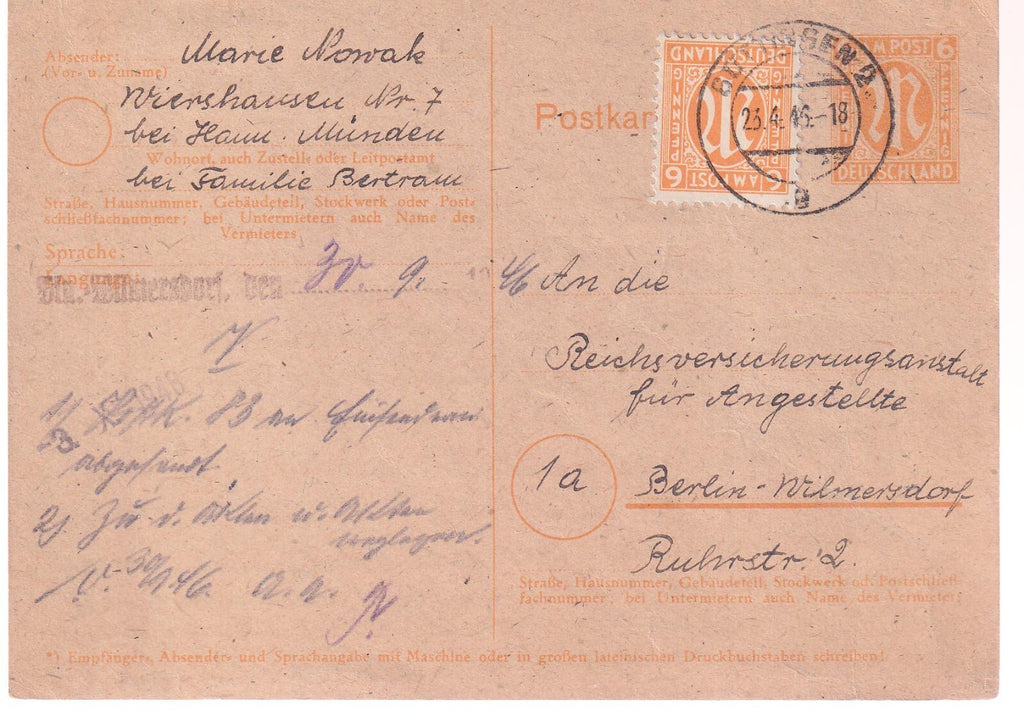 Absender:
(Vor- u. Zuname)
Marie Nowak
Wiershausen Nr. 7
bei Hann. Münden
Wohnort, auch Zustell- oder Leitpostamt
bei Familie Bertram
Straße, Hausnummer, Gebäudeteil, Stockwerk oder Post-
schließfachnummer; bei Untermietern auch Name des
Vermieters
Sprache:
den 30. 9. 1946
V
1)
83 an Einsenderin
abgesandt.
2) Zu d. Akten
V. 30/9 46.
*) Empfänger-, Absender- und Sprachangabe mit Maschine oder in großen lateinischen Druckbuchstaben schreiben!
Postkar
DEUTSCHLAND
PFENNIG
AM POST
6
6
23.4.46.-18
a
M POST
6
DEUTSCHLAND
An die
Reichsversicherungsanstalt
für Angestellte
1a
Berlin-Wilmersdorf
Ruhrstr. 2.
Straße, Hausnummer, Gebäudeteil, Stockwerk od. Postschließ-
fachnummer; bei Untermietern auch Name des Vermieters